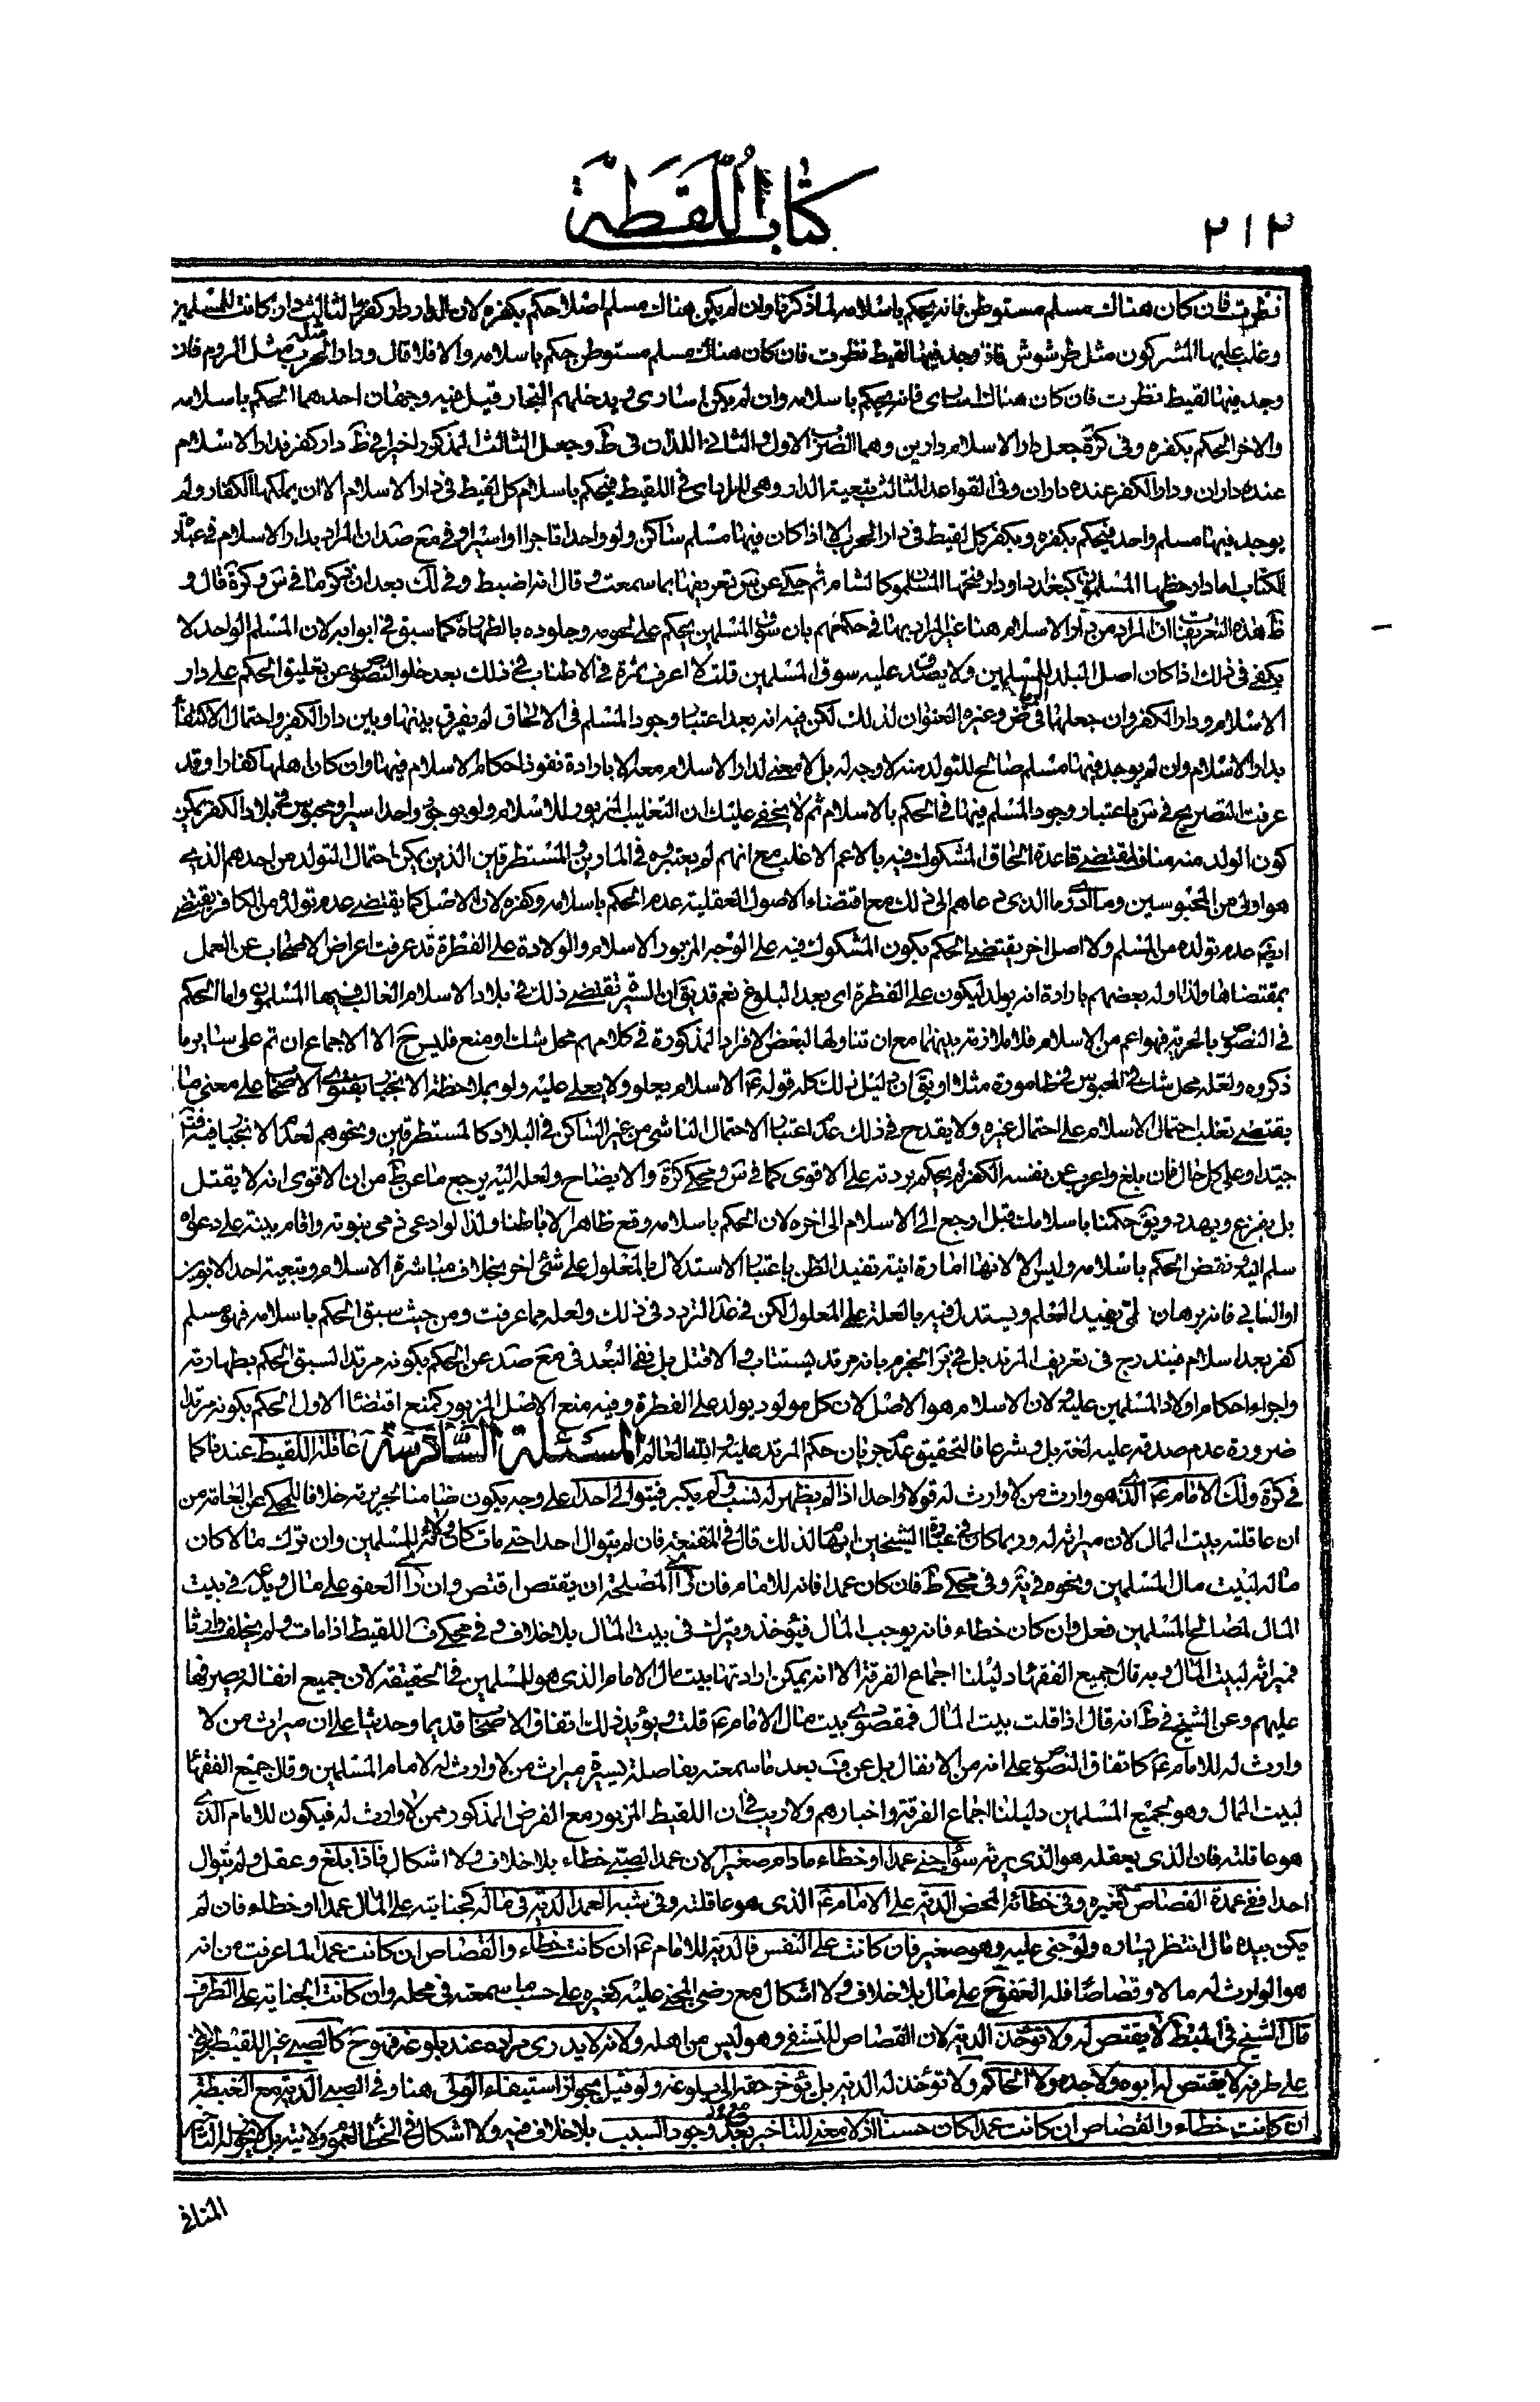 كتاب اللقطة
٢١٢
نظرت فان كان هناك مسلم مستوطن فانه يحكم باسلامه لما ذكرنا وان لم يكن هناك مسلم اصلا حكم بكفره لان الدار دار كفر الثالث دار كانت للمسلمين
وغلب عليها المشركون مثل طرسوس فاذا وجد فيها لقيط نظرت فان كان هناك مسلم مستوطن حكم باسلامه والا فلا قال ودار الحرب مثل الروم فان
وجد فيها لقيط نظرت فان كان هناك اسارى فانه يحكم باسلامه وان لم يكن اسارى ويدخلهم التجار قيل فيه وجهان احدهما الحكم باسلامه
والاخر الحكم بكفره وفى كرة جعل دار الاسلام دارين وهما الضرب الاول والثانى اللذان فى ط وجعل الثالث المذكور اخيرا فى ط دار كفر فدار الاسلام
عنده داران ودار الكفر عنده داران وفى القواعد الثالث تبعية الدار وهى المراد فى اللقيط فيحكم باسلام كل لقيط فى دار الاسلام الا ان يملكها الكفار ولم
يوجد فيها مسلم واحد فيحكم بكفره وبكفر كل لقيط فى دار الحرب الا اذا كان فيها مسلم ساكن ولو واحدا تاجرا او اسيرا وفى مع صد ان المراد بدار الاسلام فى عبارة
الكتاب اما دار خطها المسلمون كبغداد او دار فتحها المسلمون كالشام ثم حكى عن س تعريفها بما سمعت وقال انه اضبط وفى لك بعد ان ذكر ما فى س وكرة قال و
ظ هذه التعريفات ان المراد من دار الاسلام هنا غير المراد بها فى حكمهم بان سوق المسلمين يحكم على لحومه وجلوده بالطهارة كما سبق فى ابوابه لان المسلم الواحد لا
يكفى فى ذلك اذا كان اصل البلد للمسلمين ولا يصدق عليه سوق المسلمين قلت لا اعرف ثمرة فى الاطناب فى ذلك بعد خلو النصوص عن تعليق الحكم على دار
الاسلام ودار الكفر وان جعلها فى ض وغيره العنوان لذلك لكن فيه انه بعد اعتبار وجود المسلم فى الالحاق لم يفرق بينها وبين دار الكفر واحتمال الاكتفاء
بدار الاسلام وان لم يوجد فيها مسلم صالح للتولد منه لا وجه له بل لا معنى لدار الاسلام معه الا بارادة نفوذ احكام الاسلام فيها وان كان اهلها كفارا وقد
عرفت التصريح فى س باعتبار وجود المسلم فيها فى الحكم بالاسلام ثم لا يخفى عليك ان التغليب المزبور للاسلام ولو بوجود واحد اسير او محبوس فى بلاد الكفر يمكن
كون الولد منه مناف لمقتضى قاعدة الحاق المشكوك فيه بالاعم الاغلب مع انهم لم يعتبروه فى المارين والمستطرقين الذين يمكن احتمال التولد من احدهم الذى
هو اولى من المحبوسين وما ادرى ما الذى دعاهم الى ذلك مع اقتضاء الاصول العقلية عدم الحكم باسلامه وكفره لان الاصل كما يقتضى عدم تولده من الكافر يقتضى
ايضا عدم تولده من المسلم ولا اصل اخر يقتضى الحكم بكون المشكوك فيه على الوجه المزبور الاسلام والولادة على الفطرة قد عرفت اعراض الاصحاب عن العمل
بمقتضاها ولذا اوله بعضهم بارادة انه يولد ليكون على الفطرة اى بعد البلوغ نعم قد يق ان السيرة تقتضى ذلك فى بلاد الاسلام الغالب فيها المسلمون واما الحكم
فى النصوص بالحرية فهو اعم من الاسلام فلا ملازمة بينهما مع ان تناولها لبعض الافراد المذكورة فى كلامهم محل شك او منع فليس ح الا الاجماع ان تم على سائر ما
ذكروه ولعله محل شك فى المحبوس فى مطامورة مثلا او يق ان دليل ذلك كله قوله ع الاسلام يعلو ولا يعلى عليه ولو بملاحظة الانجبار بفتوى الاصحاب على معنى ما
يقتضى تغلب احتمال الاسلام على احتمال غيره ولا يقدح فى ذلك عدم اعتبار الاحتمال الناشى من غير الساكن فى البلاد كالمستطرقين ونحوهم لعدم الانجبار فيه فتأمل
جيدا وعلى كل حال فان بلغ واعرب عن نفسه الكفر لم يحكم بردته على الاقوى كما فى س ومحكى كرة والايضاح ولعله اليه يرجع ما عن ط من ان الاقوى انه لا يقتل
بل يفزع ويهدد ويق حكمنا باسلامك قبل ارجع الى الاسلام الى اخره لان الحكم باسلامه وقع ظاهرا لا باطنا ولذا لو ادعى ذمى بنوته واقام بينة على دعواه
سلم اليه ونقض الحكم باسلامه وليس الا لانها امارة انية تفيد الظن باعتبار الاستدلال بالمعلول على شئ اخر بخلاف مباشرة الاسلام وتبعية احد الابوين
او السابى فانه برهان لمى يفيد العلم ويستدل فيه بالعلة على المعلول لكن فى عد التردد فى ذلك ولعله مما عرفت ومن حيث سبق الحكم باسلامه فهو مسلم
كفر بعد اسلام فيندرج فى تعريف المرتد بل فى ير الجزم بانه مرتد يستتاب والا قتل بل نفى البعد فى مع صد عن الحكم بكونه مرتدا لسبق الحكم بطهارته
واجراء احكام اولاد المسلمين عليه لان الاسلام هو الاصل لان كل مولود يولد على الفطرة وفيه منع الاصل المزبور كمنع اقتضاء الاول الحكم بكونه مرتدا
ضرورة عدم صدقه عليه لغة بل وشرعا فالتحقيق عدم جريان حكم المرتد عليه والله العالم المسئلة السادسة عاقلة اللقيط عندنا كما
فى كرة ولك الامام ع الذى هو وارث من لا وارث له قولا واحدا اذا لم يظهر له نسب ولم يكبر فيتوالى احدا على وجه يكون ضامنا لجريرته خلافا للمحكى عن العامة من
ان عاقلته بيت المال لان ميراثه له وربما كان فى عبارة الشيخين ايهام لذلك قال فى المقنعة فان لم يتوال احدا حتى مات كان ولائه للمسلمين وان ترك مالا كان
ماله لبيت مال المسلمين ونحوه فى ية وفى محكى ط فان كان عمدا فانه للامام فان رأى المصلحة ان يقتص اقتص وان رأى العفو على مال ويدعه فى بيت
المال لمصالح المسلمين فعل وان كان خطاء فانه يوجب المال فيؤخذ ويترك فى بيت المال بلا خلاف وفى محكى ف اللقيط اذا مات ولم يخلف وارثا
فميراثه لبيت المال وبه قال جميع الفقهاء دليلنا اجماع الفرقة الا انه يمكن ارادتها بيت مال الامام الذى هو للمسلمين فى الحقيقة لان جميع افعاله يصرفها
عليهم وعن الشيخ فى ط انه قال اذا قلت بيت المال فمقصودى بيت مال الامام ع قلت ويؤيد ذلك اتفاق الاصحاب قديما وحديثا على ان ميراث من لا
وارث له للامام ع كاتفاق النصوص على انه من الانفال بل عن ف بعد ما سمعته بفاصلة يسيرة ميراث من لا وارث له لامام المسلمين وقال جميع الفقهاء
لبيت المال وهو لجميع المسلمين دليلنا اجماع الفرقة واخبارهم ولا ريب فى ان اللقيط المزبور مع الفرض المذكور ممن لا وارث له فيكون للامام الذى
هو عاقلته فان الذى يعقله هو الذى يرثه سواء جنى عمدا او خطاء ما دام صغيرا لان عمد الصبى خطاء بلا خلاف ولا اشكال فاذا بلغ وعقل ولم يتوال
احدا ففى عمده القصاص كغيره وفى خطائه المحض الدية على الامام ع الذى هو عاقلته وفى شبه العمد الدية فى ماله كجنايته على المال عمدا او خطاء فان لم
يكن بيده مال انتظر يساره ولو جنى عليه وهو صغير فان كانت على النفس فالدية للامام ع ان كانت خطاء والقصاص ان كانت عمدا لما عرفت من انه
هو الوارث له مالا وقصاصا فله العفو ح على مال بلا خلاف ولا اشكال مع رضى المجنى عليه كغيره على حسب ما سمعته فى محله وان كانت الجناية على الطرف
قال الشيخ فى المبسوط لا يقتص له ولا تؤخذ الدية لان القصاص للتشفى وهو ليس من اهله ولانه لا يدرى مراده عند بلوغه فهو ح كالصبى غير اللقيط المجنى
على طرفه لا يقتص له ابوه ولا جده ولا الحاكم ولا تؤخذ له الدية بل يؤخر حقه الى بلوغه ولو قيل بجواز استيفاء الولى هنا وفى الصبى الدية مع الغبطة
ان كانت خطاء والقصاص ان كانت عمدا كان حسنا اذ لا معنى للتاخير بعد وجود السبب بلا خلاف فيه ولا اشكال فى الخطا لعموم ولايته بل لا يجوز له التاخير
المنافى